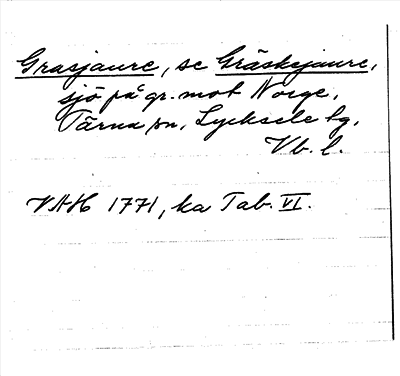 Grasjaure, se Gräskejaure,
sjö på gr. mot Norge,
Tärna sn, Lycksele lg,
Vb. l.
VAH 1771, ka Tab. VI.